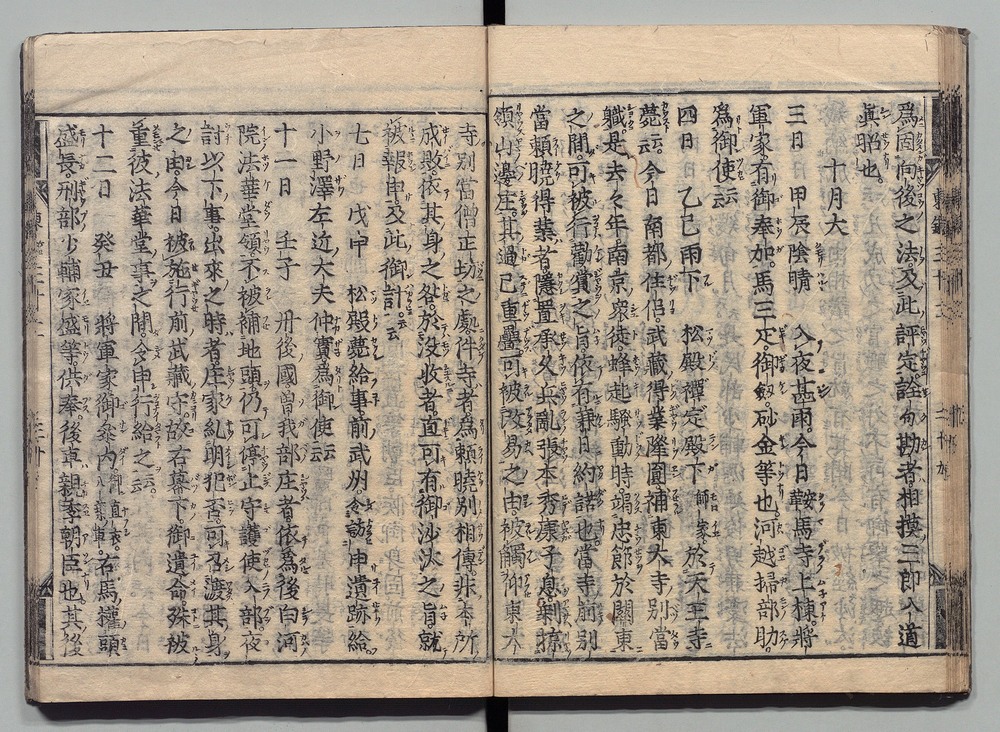 爲固向後之法及此評定詮句勘者相摸三郎入道
眞昭也
十月大
三日 甲辰陰晴 入夜甚雨今日鞍馬寺上棟將
軍家有御奉加馬三疋御劔砂金等也河越掃部助
爲御使云云
四日 乙巳雨下 松殿禪定殿下師家於天王寺
薨云云今日南都住侶武藏得業隆圓補東大寺別當
職是去々年南京衆徒蜂起騒動時竭忠節於關東
之間可被行勸賞之旨依有兼日約諾也當寺前別
當頼曉得業者隱置承久兵亂張本秀康子息剩掠
領山邊庄其過已重疊可被改易之由被觸仰東大
寺別當僧正坊之處件寺者爲頼曉別相傳非本所
成敗依其身之咎於沒收者直可有御沙汰之旨就
被報申及此御計云云
七日 戊申 松殿薨給事前武州令訪申遺跡給
小野澤左近大夫仲實爲御使云云
十一日 壬子 丹後國曽我部庄者依爲後白河
院法華堂領不被補地頭仍可停止守護使入部夜
討以下事出來之時者庄家糺明犯否可召渡其身
之由今日被施行前武藏守故右幕下御遺命殊被
重彼法華堂事之間令申行給之云云
十二日 癸丑 將軍家御參内御直衣八葉車右馬權頭
盛長刑部少輔家盛等供奉後車親季朝臣也其後